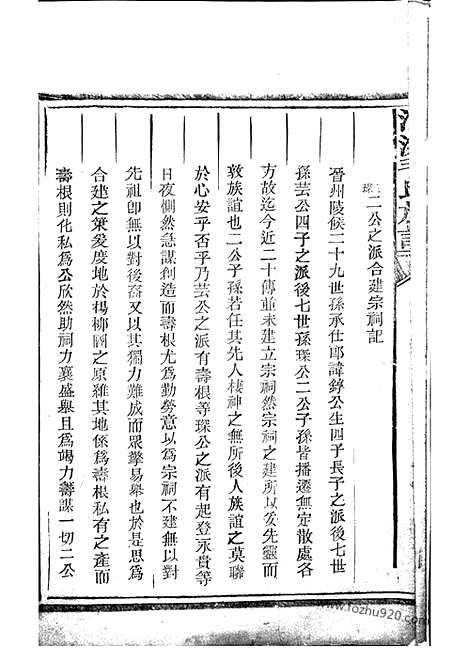 琛芸二公之派合建宗祠記
晉州陵侯二十九世孫承仕郎諱錞公生四子長子之派後七世
孫芸公四子之派後七世孫琛公二公子孫皆播遷無定散處各
方故迄今近二十傳並未建立宗祠然宗祠之建所以妥先靈而
敦族誼也二公子孫若任其先人棲神之無所後人族誼之莫聯
於心安乎否乎乃芸公之派有壽根等琛公之派有起登永貴等
日夜惻然急謀創造而壽根尤爲勤勞意以爲宗祠不建無以對
先祖卽無以對後裔又以其獨力難成而眾擎易舉也於是思爲
合建之策爰度地於楊柳圈之原雖其地係爲壽根私有之產而
壽根則化私爲公欣然助祠力襄盛舉且爲竭力籌謀一切二公
www.fozhu920.com